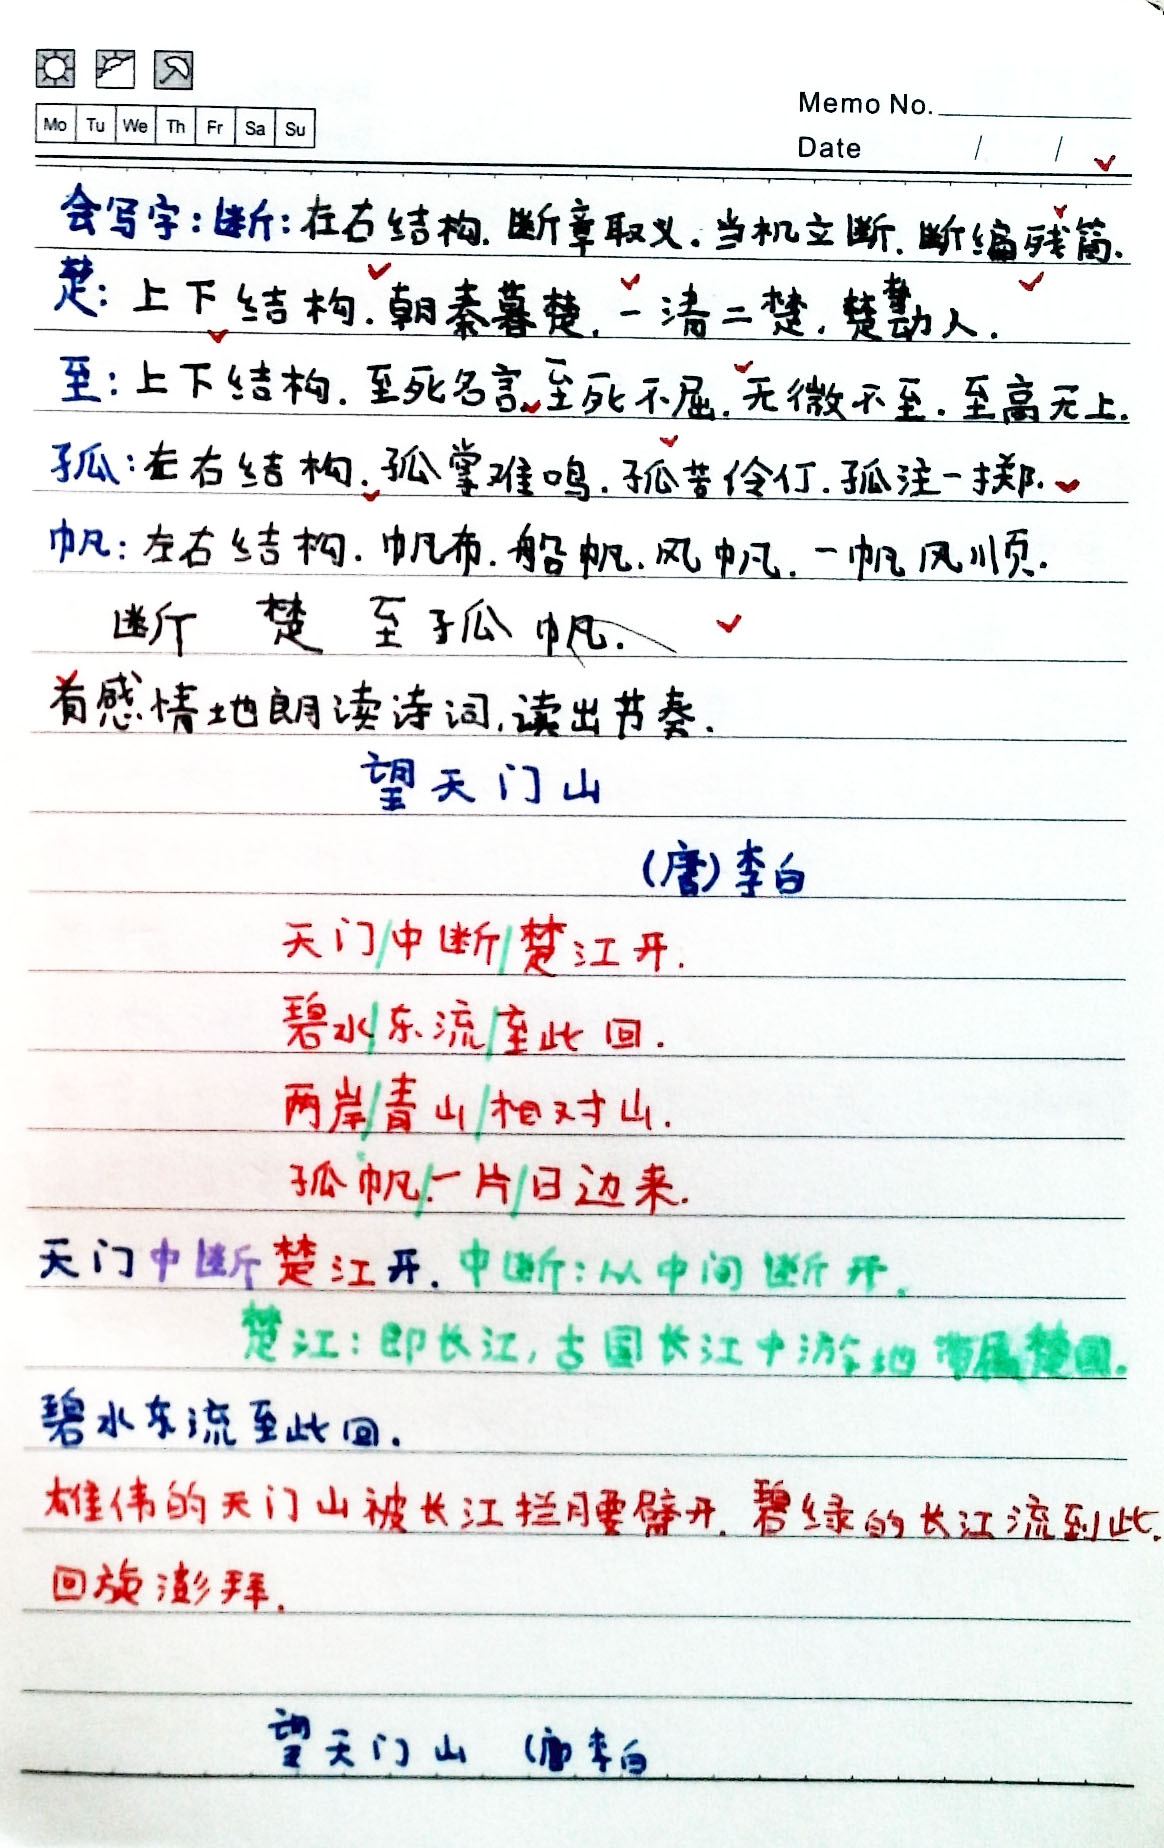 Mo Tu We Th Fr Sa Su
Memo No.
Date / /
会写字：断：左右结构.断章取义.当机立断.断编残简.
楚：上下结构.朝秦暮楚.一清二楚.楚楚动人.
至：上下结构.至死名言.至死不屈.无微不至.至高无上.
孤：左右结构.孤掌难鸣.孤苦伶仃.孤注一掷.
帆：左右结构.帆布.船帆.风帆.一帆风顺.
断 楚 至 孤 帆.
有感情地朗读诗词,读出节奏.
望天门山
(唐)李白
天门/中断/楚江开.
碧水/东流/至此回.
两岸/青山/相对山.
孤帆/一片/日边来.
天门中断楚江开.中断：从中间断开.
楚江：即长江,古国长江中游地带属楚国.
碧水东流至此回.
雄伟的天门山被长江拦腰劈开.碧绿的长江流到此.
回旋澎拜.
望天门山 (唐李白